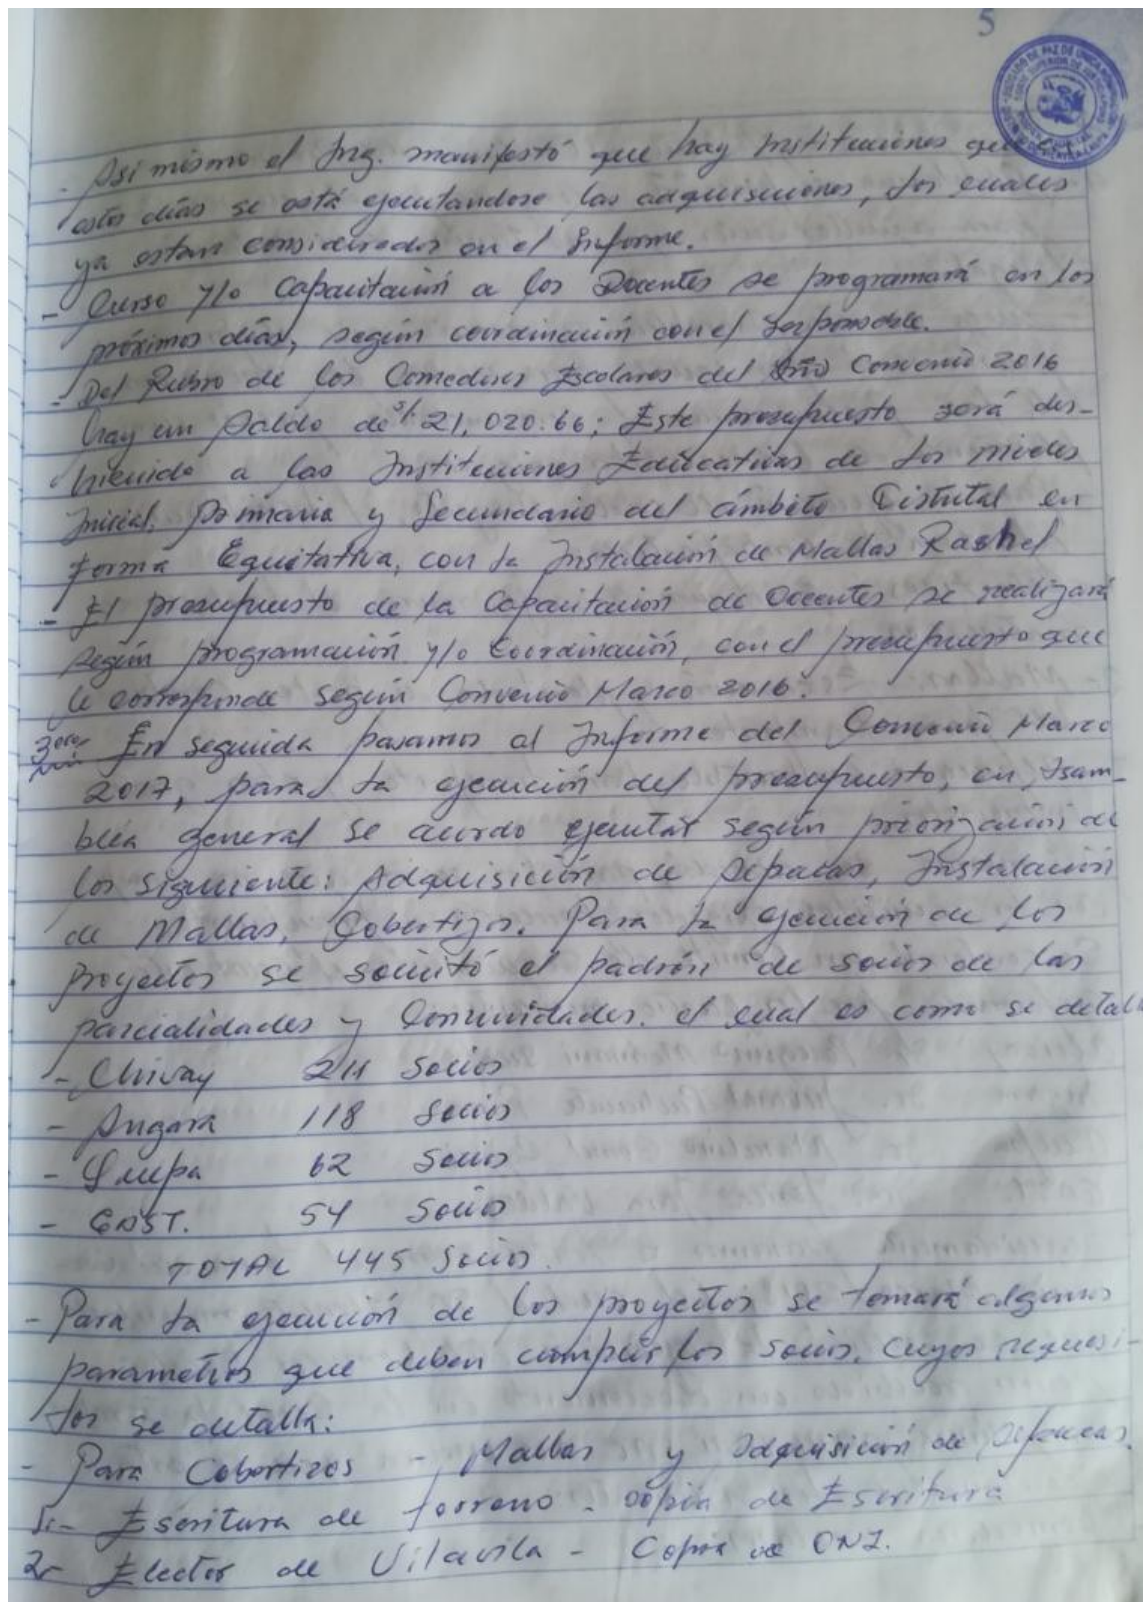 5
- Asi mismo el Ing. manifestó que hay Instituciones que en
estos días se está ejecutandose las adquisiciones, los cuales
ya estan considerados en el Informe.
- Curso y/o Capacitación a los Docentes se programará en los
próximos días, según coordinación con el responsable.
- Del Rubro de los Comedores Escolares del Convenio 2016
hay un Saldo de S/. 21,020.66; Este presupuesto será des-
a las Instituciones Educativas de los niveles
Inicial, Primaria y Secundario del ámbito Distrital en
forma Equitativa, con la Instalación de Mallas Rashel
- El presupuesto de la Capacitación de Docentes se realizará
según programación y/o Coordinación, con el presupuesto que
le corresponde según Convenio Marco 2016.
En seguida pasamos al Informe del Convenio Marco
2017, para la ejecución del presupuesto, en Asam-
blea general se acordo ejecutar según priorización de
los siguiente: Adquisición de Alpacas, Instalación
de Mallas, Cobertizos. Para la ejecución de los
proyectos se solicitó el padrón de socios de las
parcialidades y Comunidades. el cual es como se detalla
- Chivay 211 Socios
- Angara 118 Socios
- 62 Socios
- 54 Socios
TOTAL 445 Socios.
- Para la ejecución de los proyectos se tomará algunos
parametros que deben cumplir los socios. cuyos requesi-
tos se detalla:
- Para Cobertizos - Mallas y adquisición de Alpacas.
1.- Escritura de terreno - copia de Escritura
2.- Elector de Vilavila - Copia de DNI.